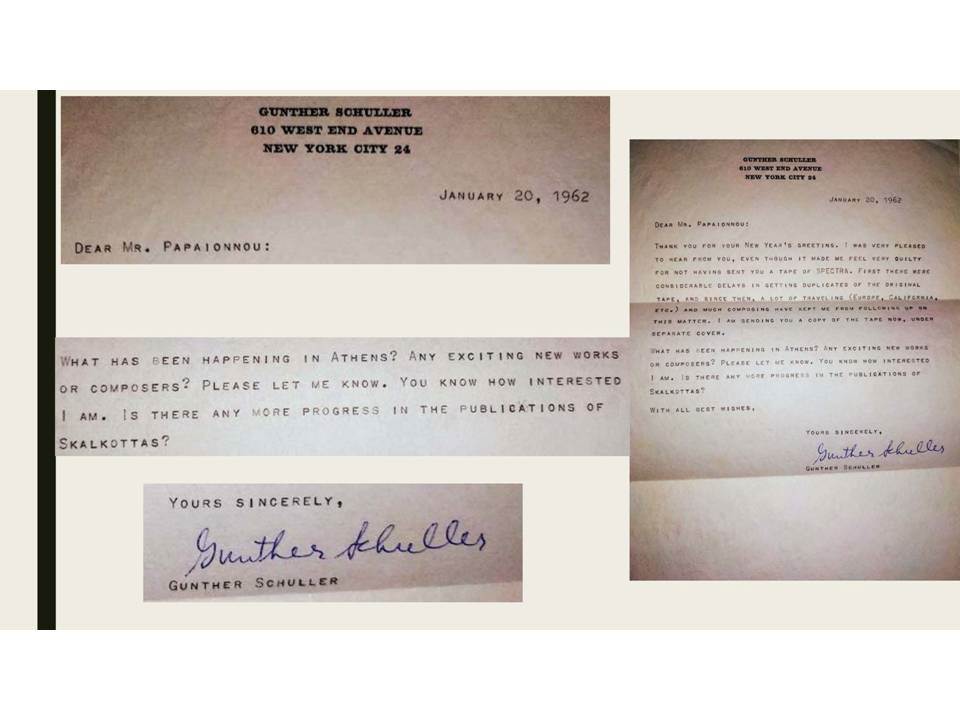 GUNTHER SCHULLER
610 WEST END AVENUE
NEW YORK CITY 24
JANUARY 20, 1962
DEAR MR. PAPAIONNOU:
WHAT HAS BEEN HAPPENING IN ATHENS? ANY EXCITING NEW WORKS
OR COMPOSERS? PLEASE LET ME KNOW. YOU KNOW HOW INTERESTED
I AM. IS THERE ANY MORE PROGRESS IN THE PUBLICATIONS OF
SKALKOTTAS?
YOURS SINCERELY,
Gunther Schuller
GUNTHER SCHULLER
GUNTHER SCHULLER
610 WEST END AVENUE
NEW YORK CITY 24
JANUARY 20, 1962
DEAR MR. PAPAIONNOU:
THANK YOU FOR YOUR NEW YEAR'S GREETING. I WAS VERY PLEASED
TO HEAR FROM YOU, EVEN THOUGH IT MADE ME FEEL VERY GUILTY
FOR NOT HAVING SENT YOU A TAPE OF SPECTRA. FIRST THERE WERE
CONSIDERABLE DELAYS IN GETTING DUPLICATES OF THE ORIGINAL
TAPE, AND SINCE THEN, A LOT OF TRAVELING (EUROPE, CALIFORNIA,
ETC.) AND MUCH COMPOSING HAVE KEPT ME FROM FOLLOWING UP ON
THIS MATTER. I AM SENDING YOU A COPY OF THE TAPE NOW, UNDER
SEPARATE COVER.
WHAT HAS BEEN HAPPENING IN ATHENS? ANY EXCITING NEW WORKS
OR COMPOSERS? PLEASE LET ME KNOW. YOU KNOW HOW INTERESTED
I AM. IS THERE ANY MORE PROGRESS IN THE PUBLICATIONS OF
SKALKOTTAS?
WITH ALL BEST WISHES,
YOURS SINCERELY,
Gunther Schuller
GUNTHER SCHULLER